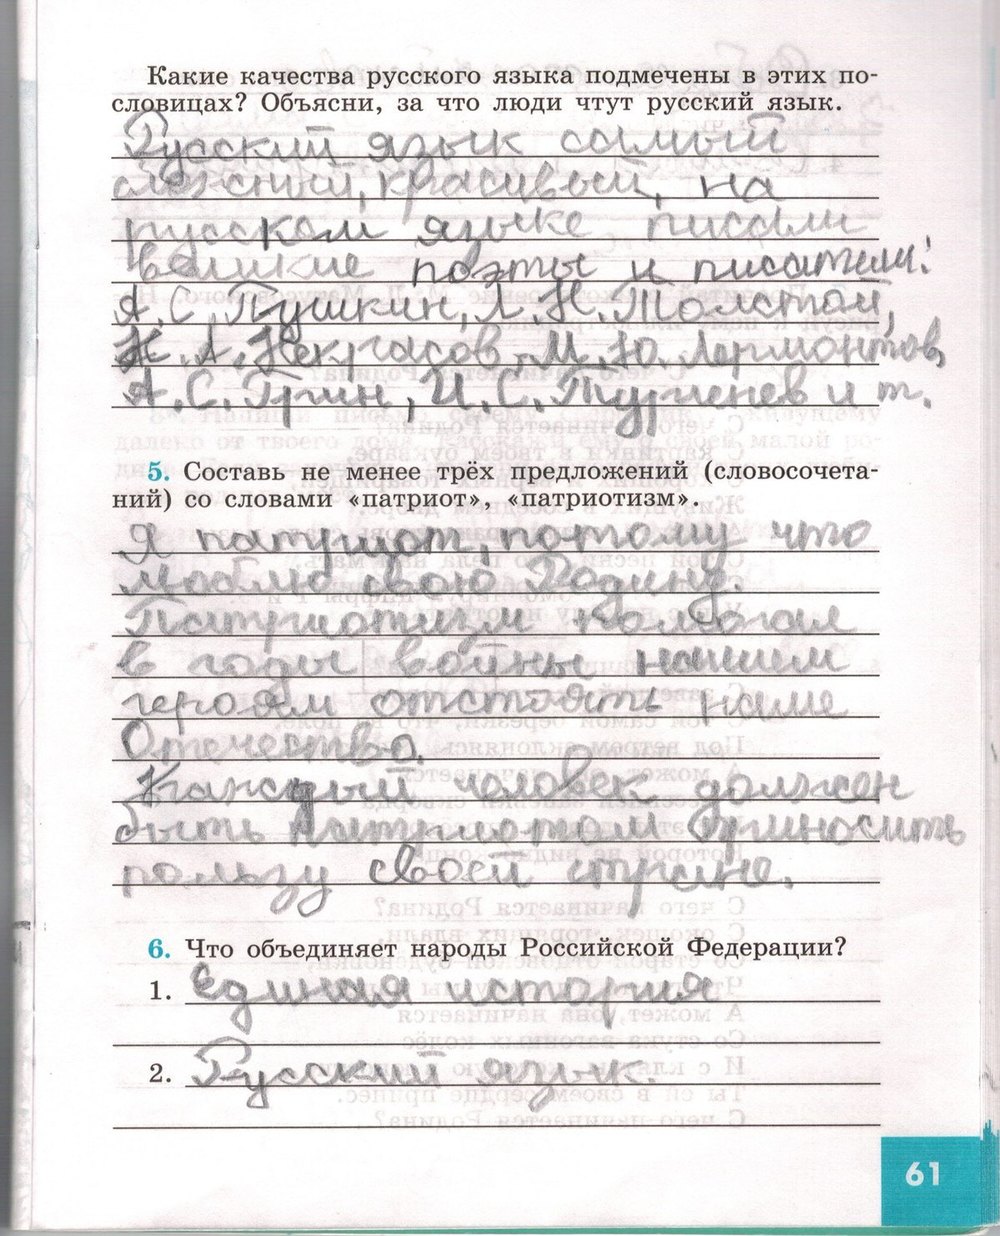 Какие качества русского языка подмечены в этих по-
словицах? Объясни, за что люди чтут русский язык.
Русский язык самый
сложный, красивый, на
русском языке писали
великие поэты и писатели:
А.С.Пушкин, Л.Н.Толстой,
Н.А.Некрасов, М.Ю.Лермонтов,
А.С.Грин, И.С.Тургенев и т.
5. Составь не менее трёх предложений (словосочета-
ний) со словами «патриот», «патриотизм».
Я патриот, потому что
люблю свою Родину.
Патриотизм помогал
в годы войны нашим
героям отстоять наше
Отечество.
Каждый человек должен
быть патриотом приносить
пользу своей стране.
6. Что объединяет народы Российской Федерации?
1. Единая история
2. Русский язык.
61